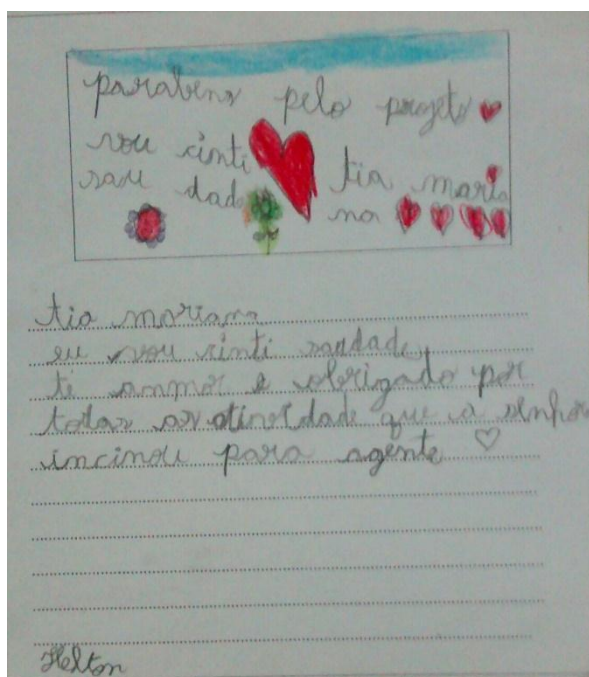 parabens pelo projeto
vou sinti
sau dade tia maria
na
tia moriana
eu vou sinti saudade
ti ammor e obrigado por
todas as ativordade que a senhora
incinou para agente
Helton